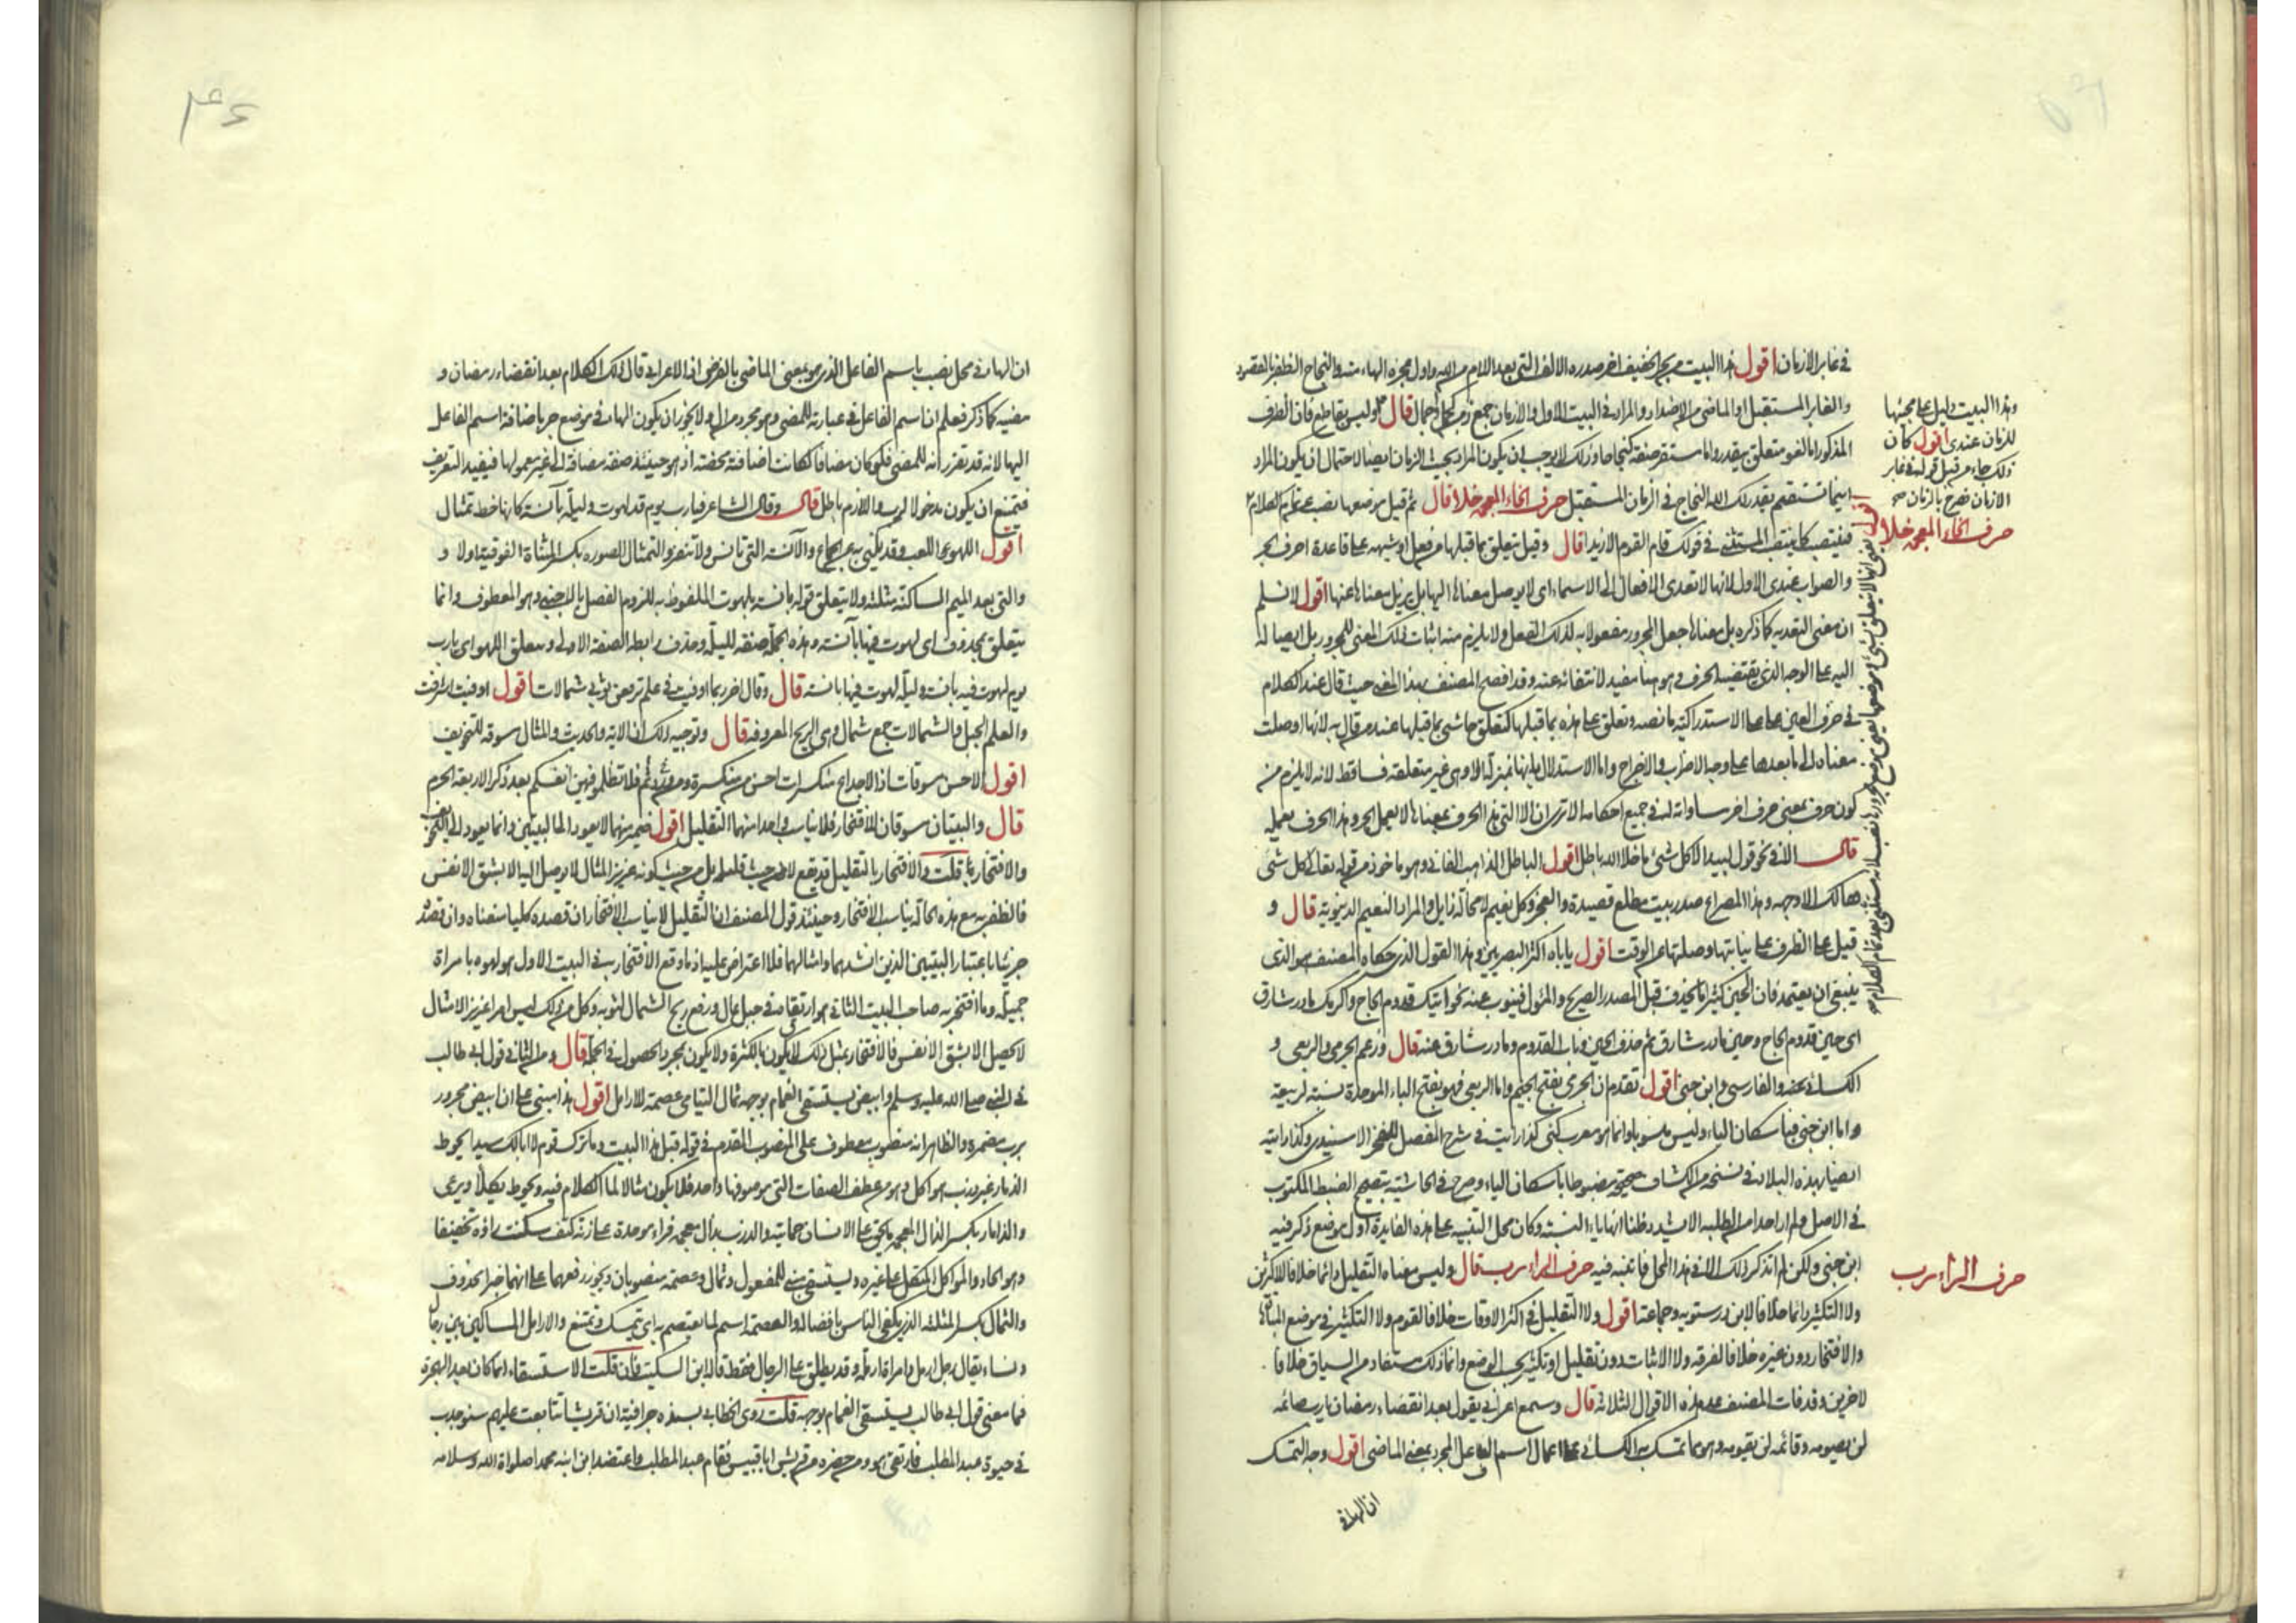 في غابر الازمان اقول هذا البيت من بحر الخفيف اخر صدره الالف التي بعد اللام من الله واول عجزه الهاء منه والنجاح الظفر بالمقصود
والغابر المستقبل او الماضي من الاضداد والمراد في البيت الاول والازمان جمع زمن كجبل واجمال قال وليس بقاطع فان الظرف
المذكور اما لغو متعلق بيقدر واما مستقر صفة لنجاحا وذلك لا يوجب ان يكون المراد بحيث الزمان ايضا لاحتمال ان يكون المراد
اينما تستقم يقدر لك الله النجاح في الزمان المستقبل حرف الخاء المعجمه خلا قال ثم قيل موضعها نصب عن تمام الكلام
فينتصب كما ينتصب المستثنى في قولك قام القوم الا زيدا قال وقيل يتعلق بما قبلها من فعل او شبهه على قاعدة احرف الجر
والصواب عندي الاول لانها لا تعدي الافعال الى الاسماء اي لا يوصل معناها اليها بل يزيل معناها عنها اقول لا نسلم
ان معنى التعديه كما ذكره بل معناها جعل المجرور مفعولا به لذلك الفعل ولا يلزم منه اثبات ذلك المعنى للمجرور بل ايصاله
اليه على الوجه الذي يقتضيه الحرف وهو هنا مفيد لانتفائه عنه وقد افصح المصنف بهذا المعنى حيث قال عند الكلام
في حرف العين على على الاستدراكية ما نصه وتعلق على هذه بما قبلها كتعلق حاشى بما قبلها عند من قال به لانها اوصلت
معناه الى ما بعدها على وجه الاضراب والاخراج واما الاستدلال بانها بمنزلة الا وهي غير متعلقة فساقط لانه لا يلزم من
كون حرف بمعنى حرف اخر مساواته له في جميع احكامه الا ترى ان الا التي هذا الحرف بمعناها لا يعمل الجر وهذا الحرف يعمله
قال الثاني نحو قول لبيد الا كل شئ ما خلا الله باطل اقول الباطل الذاهب الفاني وهو ماخوذ من قوله تعالى كل شئ
هالك الا وجهه وهذا المصراع صدر بيت مطلع قصيدة والعجز وكل نعيم لا محالة زايل والمراد النعيم الدنيويه قال و
قيل على الظرف على نيابتها وصلتها عن الوقت اقول ياباه اكثر البصريين وهذا القول الذي حكاه المصنف هو الذي
ينبغي ان يعتمد فان الحين كثيرا ما يحذف قبل المصدر الصريح والمئول فينوب عنه نحو اتيتك قدوم الحاج واكرمك ما در شارق
اي حين قدوم الحاج وحين ما در شارق ثم حذف الحين وناب القدوم وما در شارق عنه قال وزعم الجرمي والربعي و
الكسائي والفارسي وابن جني اقول تقدم ان الجرمي بفتح الجيم واما الربعي فهو بفتح الباء الموحدة نسبة لربيعة
واما ابن جني فباسكان الياء وليس منسوبا وانما هو معرب كني كذا رايت في شرح المفصل للفخر الاسفندري وكذا رايته
ايضا بهذه البلاد في نسخه من الكشاف صحيحة مضبوطا باسكان الياء وصرح في الحاشية بتصحيح الضبط المكتوب
في الاصل ولم ار احدا من الطلبه الا يشدد ظنا انها ياء النسبة وكان محل التنبيه على هذه الفايدة اول موضع ذكر فيه
ابن جني ولكن لم اتذكر ذلك الا في هذا المحل فانتبه فيه حرف الراء رب قال وليس معناه التقليل دائما خلافا للاكثرين
ولا التكثير دائما خلافا لابن درستويه وجماعة اقول ولا التقليل في اكثر الاوقات خلافا لقوم ولا التكثير في موضع المباهاة
والافتخار دون غيره خلافا لفرقه ولا الاثبات دون تقليل او تكثير بحسب الوضع وانما ذلك مستفاد من السياق خلافا
لاخرين وقد فات المصنف عد هذه الاقوال الثلاثة قال وسمع اعرابي يقول بعد انقضاء رمضان يا رب صائمه
لن يصومه وقائمه لن يقومه وهو مما تمسك به الكسائي على اعمال اسم الفاعل المجرد بمعنى الماضي اقول وجه التمسك
ان الهاء في
وهذا البيت دليل على مجيئها
للزمان عندي اقول كان
ذلك جاء من قبل قوله في غابر
الازمان فصرح بالزمان صح
حرف الخاء المعجمه خلا
حرف الراء رب
ان الهاء في محل نصب باسم الفاعل الذي هو بمعنى الماضي بالفرض اذ الاعرابي قال ذلك الكلام بعد انقضاء رمضان و
مضيه كما ذكر فعلم ان اسم الفاعل في عبارته للمضي وهو مجرد من ال ولا يجوز ان يكون الهاء في موضع جر باضافة اسم الفاعل
اليها لانه قد تقرر انه للمضي فلو كان مضافا لكانت اضافته محضة اذ هو حينئذ صفة مضافة الى غير معمولها فيفيد التعريف
فيمتنع ان يكون مدخولا لرب واللازم باطل قال وقال الشاعر فيا رب يوم قد لهوت وليلة بآنسة كانها خط تمثال
اقول اللهو هو اللعب وقد يكنى به عن الجماع والآنسة التي تانس ولا تنفر والتمثال الصوره بكسر المثناة الفوقية اولا و
والتي بعد الميم الساكنة مثلثه ولا يتعلق قوله بانسه بلهوت الملفوظ به للزوم الفصل بالاجنبي وهو المعطوف وانما
يتعلق بمحذوف اي لهوت فيها بآنسة وهذه الجملة صفة لليلة وحذف رابط الصفة الاولى ومتعلق اللهو اي يا رب
يوم لهوت فيه بانسة وليلة لهوت فيها بانسة قال وقال اخر ربما اوفيت في علم ترفعن ثوبي شمالات اقول اوفيت اشرفت
والعلم الجبل والشمالات جمع شمال وهي الريح المعروفه قال وتوجيه ذلك ان الاية والحديث والمثال مسوقه للتخويف
اقول الاحسن مسوقات اذ الاجذاع منكسرات احسن من منكسرة ومن ثم فلا تظلموا فيهن انفسكم بعد ذكر الاربعة الحرم
قال والبيتان مسوقان للافتخار فلا يناسب واحدا منهما التقليل اقول ضمير منهما لا يعود الى البيتين وانما يعود الى التخويف
والافتخار فان قلت والافتخار بالتقليل قد يقع لا من حيث قليله بل من حيث كونه عزيز المثال لا يوصل اليه الا بشق الانفس
فالظفر به مع هذه الحالة يناسب الافتخار وحينئذ قول المصنف ان التقليل لا يناسب الافتخار ان قصده كليا منعناه وان قصده
جزئيا باعتبار البيتين الذين انشدهما وامثالهما فلا اعتراض عليه اذ ما وقع الافتخار به في البيت الاول هو لهوه بامراة
جميلة وما افتخر به صاحب البيت الثاني هو ارتقاه في جبل عال ورفع ريح الشمال لثوبه وكل من ذلك ليس امرا عزيز الامثال
لا يحصل الا بشق الانفس فالافتخار بمثل ذلك لا يكون بالكثرة ولا يكون بمجرد الحصول في الجملة قال ومن الثاني قول ابي طالب
في النبي صلى الله عليه وسلم وابيض يستسقى الغمام بوجهه ثمال اليتامى عصمة للارامل اقول هذا مبني على ان ابيض مجرور
برب مضمرة والظاهر انه منصوب معطوف على المنصوب المقدم في قوله قبل هذا البيت وما ترك قوم لا ابا لك سيدا يحوط
الذمار غير ذرب مواكل وهو من عطف الصفات التي موصوفها واحد فلا يكون مثالا لما الكلام فيه ويحوط يكلا ويرعى
والذمار بكسر الذال المعجمه ما يحق على الانسان حمايته والذرب بذال معجمه فراء موحدة على زنة كتف سكنت راؤه تخفيفا
وهو الحاد والمواكل المتكل على غيره ويستسقى بني للمفعول وثمال وعصمة منصوبان ويجوز رفعهما على انهما خبرا محذوف
والثمال بكسر المثلثه الذي يكفي الناس بافضاله والعصمة اسم لما يعتصم به اي يتمسك ويمتنع والارامل المساكين من رجال
ونساء يقال رجل ارمل وامراة ارملة وقد يطلق على الرجال فقط قاله ابن السكيت فان قلت الاستسقاء انما كان بعد الهجرة
فما معنى قول ابي طالب يستسقى الغمام بوجهه قلت روى الخطابي بسنده ان قريشا تتابعت عليهم سنو جدب
في حيوة عبد المطلب فارتقى هو ومن حضره من قريش ابا قبيس فقام عبد المطلب واعتضد ابن ابنه محمدا صلواة الله وسلامه